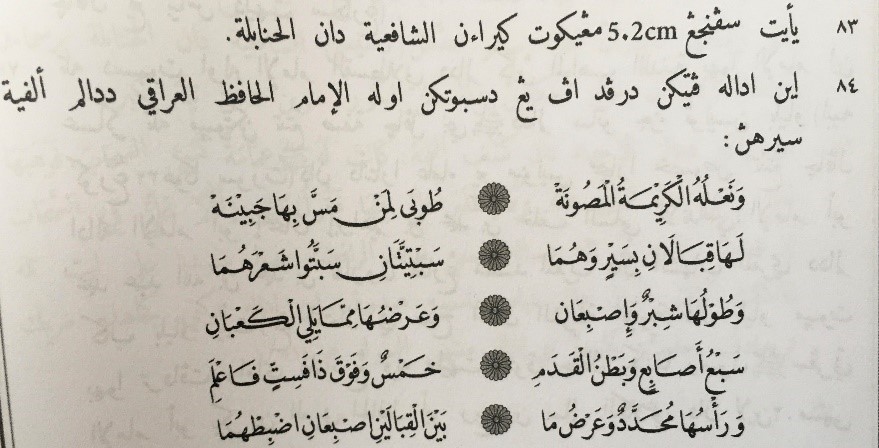 ٨٣ يأيت سڤنجڠ 5.2cm مڠيكوت كيراءن الشافعية دان الحنابلة.
٨٤ اين اداله ڤتيكن درڤد اڤ يڠ دسبوتكن اوله الإمام الحافظ العراقي ددالم ألفية
سيرهڽ:
وَنَعْلُهُ الْكَرِيْمَةُ الْمَصُونَةْ طُوبَى لِمَنْ مَسَّ بِهَا جَبِيْنَهْ
لَهَا قِبَالَانِ بِسَيْرٍ وَهُمَا سَبْتِيَّتَانِ سَبَتُوا شَعْرَهُمَا
وَطُوْلُهَا شِبْرٌ وَإِصْبِعَانِ وَعَرْضُهَا مِمَّا يَلِي الْكَعْبَانِ
سَبْعُ أَصَابِعٍ وَبَطْنُ الْقَدَمِ خَمْسٌ وَفَوْقَ ذَا فَسِتٌ فَاعْلَمِ
وَرَأْسُهَا مُحَدَّدٌ وَعَرْضُ مَا بَيْنَ الْقِبَالَيْنِ اصْبِعَانِ اضْبِطْهُمَا